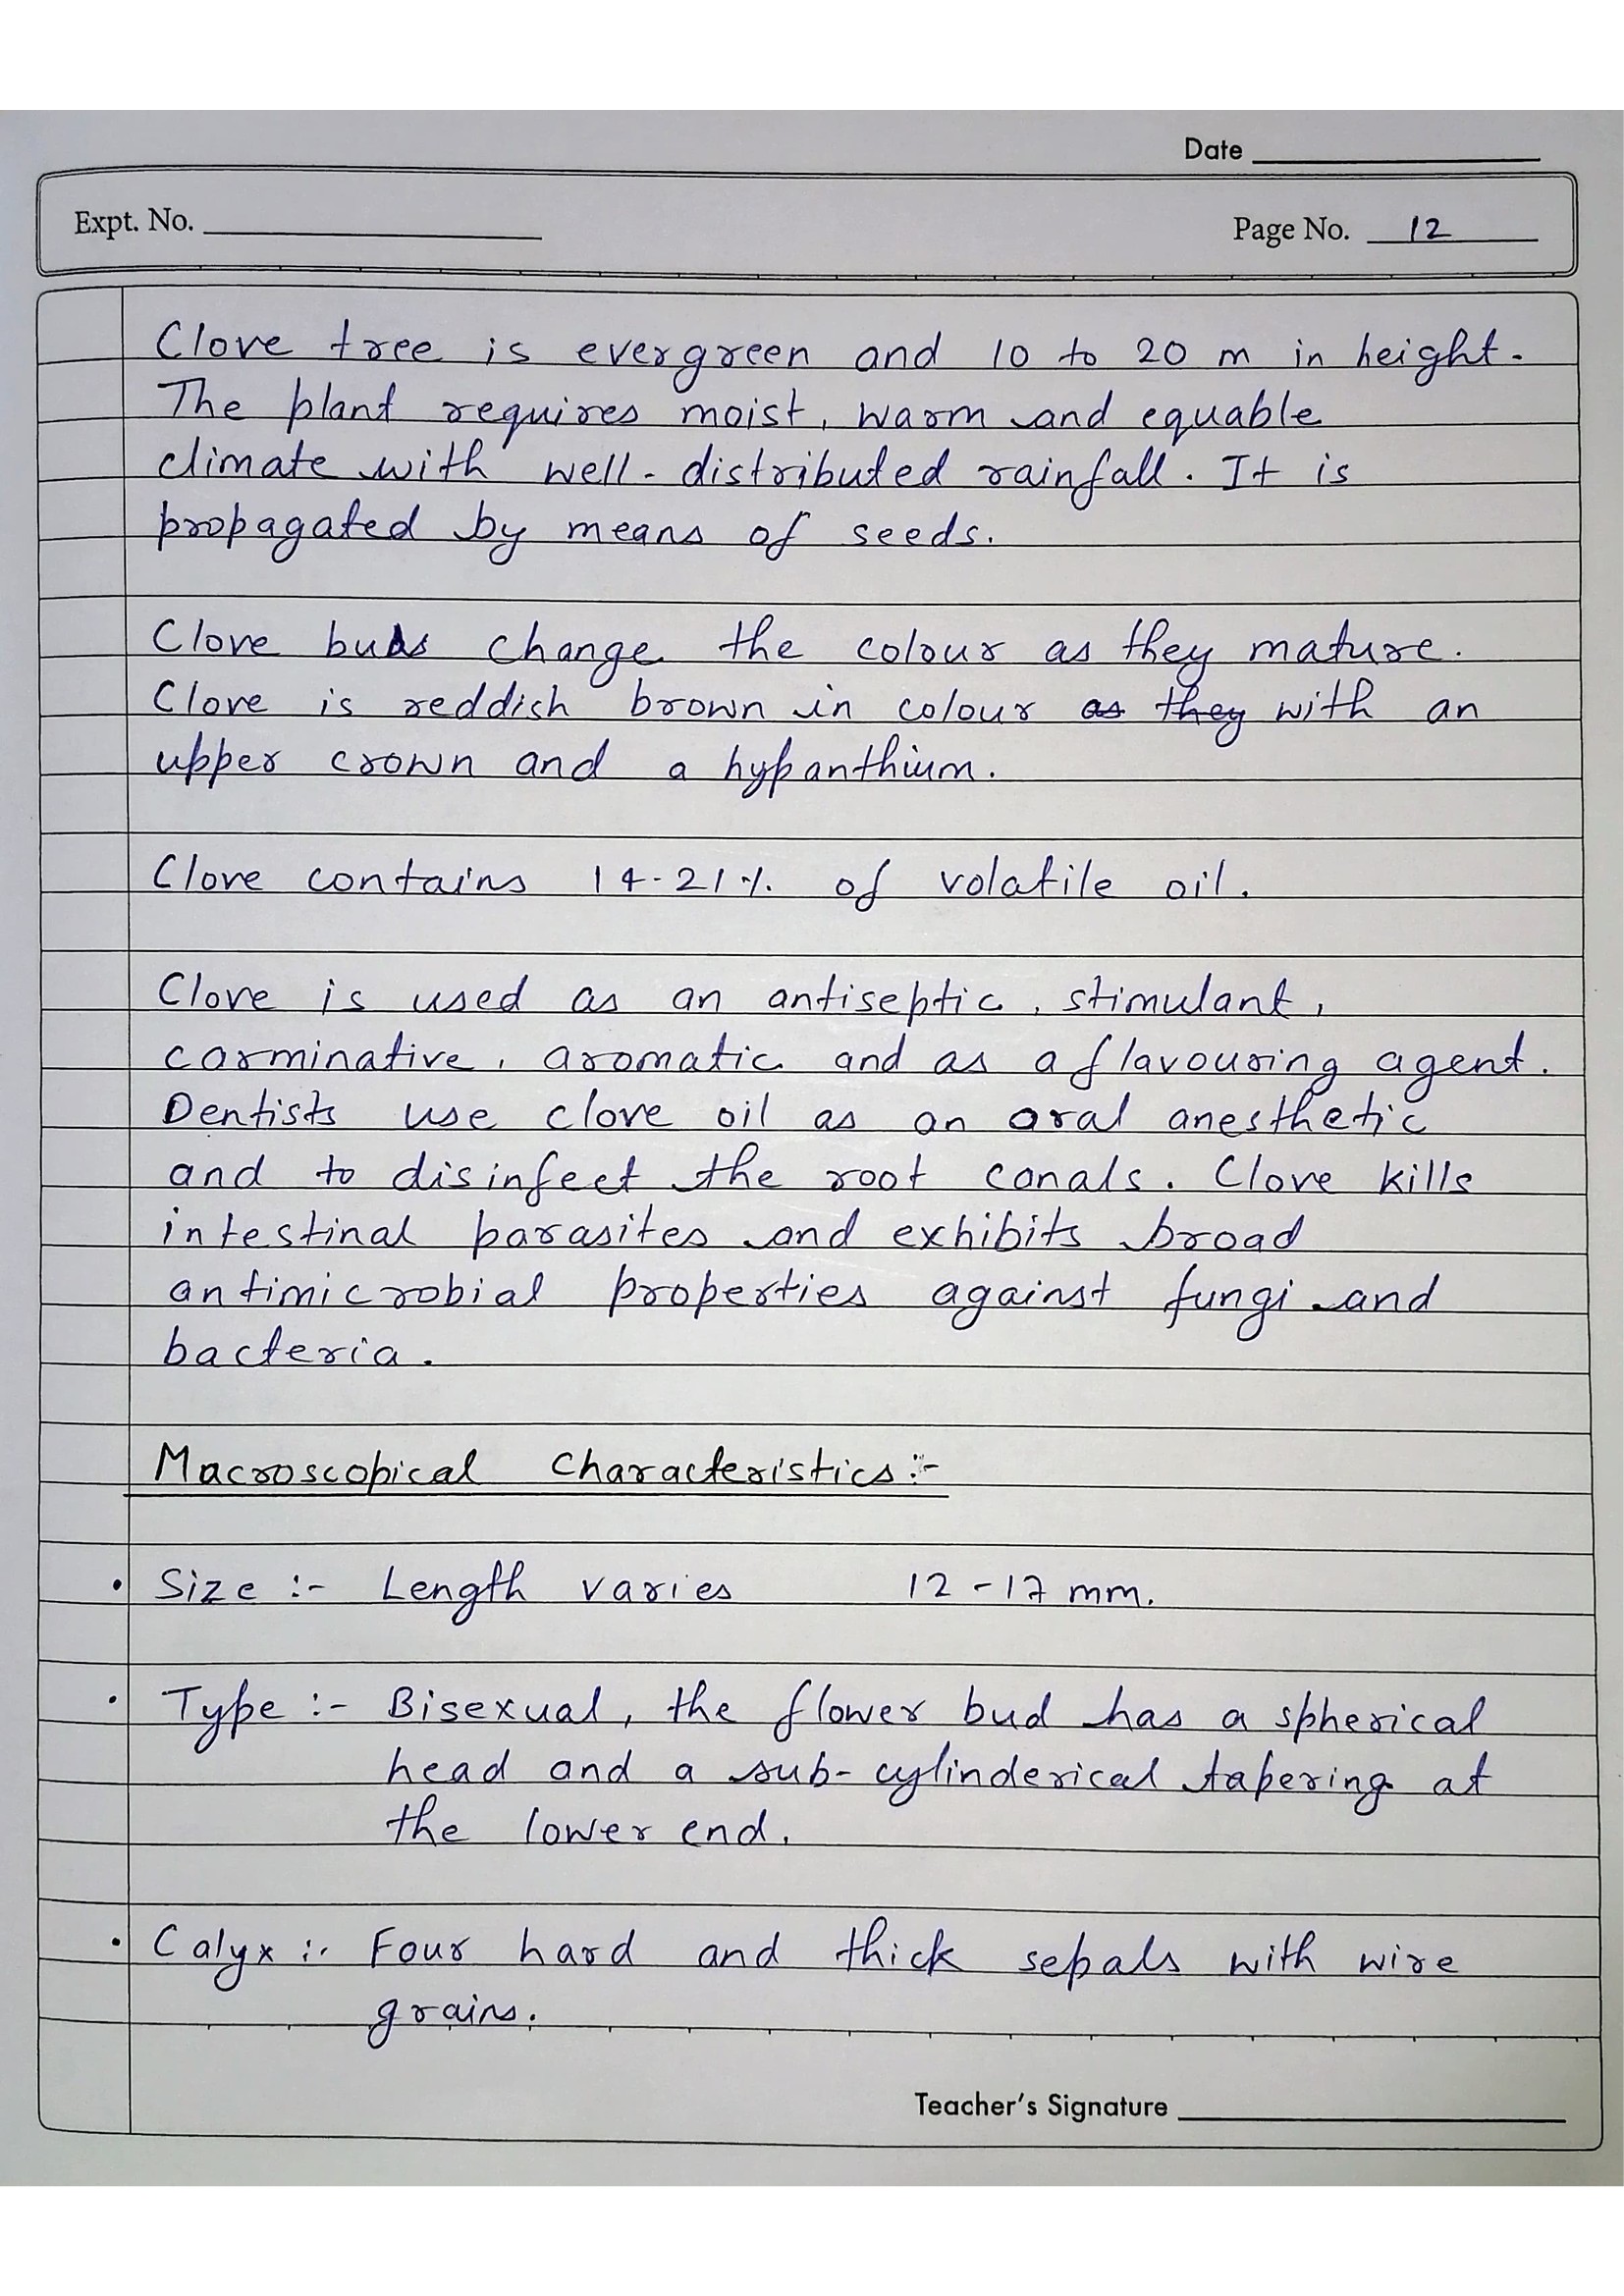 Date
Expt. No.
Page No. 12
Clove tree is evergreen and 10 to 20 m in height.
The plant requires moist, warm and equable
climate with well-distributed rainfall. It is
propagated by means of seeds.
Clove buds change the colour as they mature.
Clove is reddish brown in colour as they with an
upper crown and a hypanthium.
Clove contains 14-21% of volatile oil.
Clove is used as an antiseptic, stimulant,
carminative, aromatic and as a flavouring agent.
Dentists use clove oil as an oral anesthetic
and to disinfect the root canals. Clove kills
intestinal parasites and exhibits broad
antimicrobial properties against fungi and
bacteria.
Macroscopical Characteristics:-
• Size :- Length varies 12-17 mm.
• Type :- Bisexual, the flower bud has a spherical
head and a sub-cylinderical tapering at
the lower end.
• Calyx :- Four hard and thick sepals with wire
grains.
Teacher's Signature